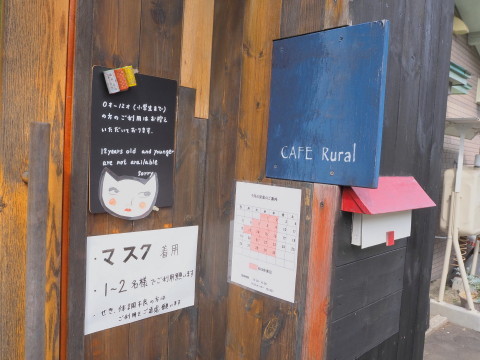 0才〜12才(小学生まで)
の方のご利用はお断り
いただいております。
12years old and younger
are not available
Sorry
CAFE Rural
・マスク着用
・1〜2名様でご利用願います
・せき、体調不良の方は
ご利用をご遠慮願います